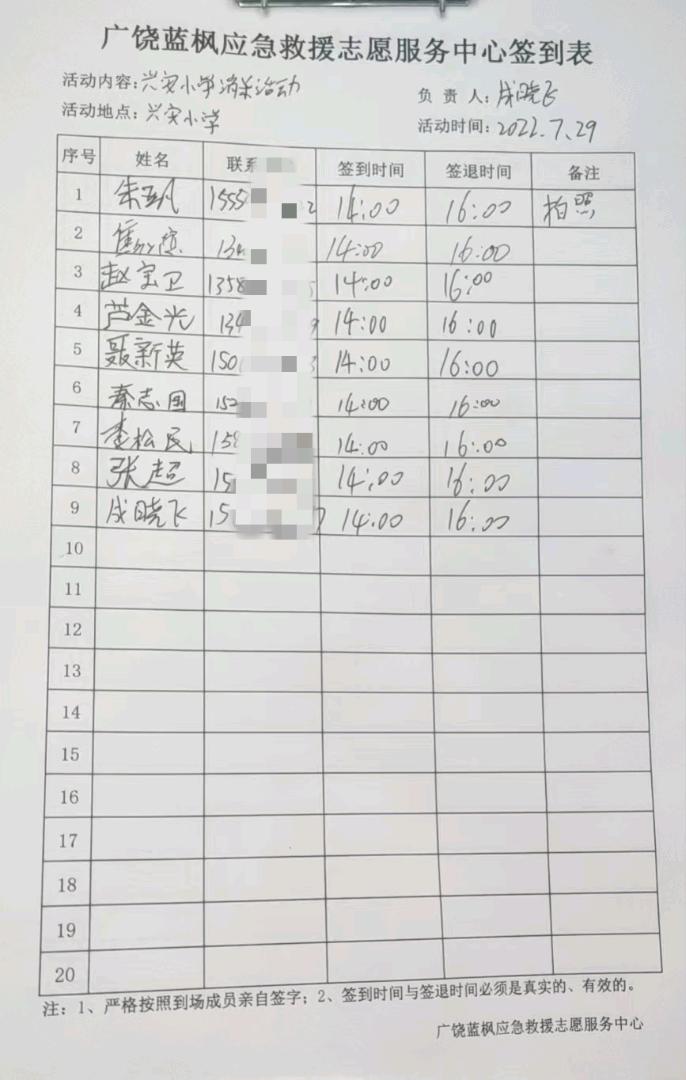 广饶蓝枫应急救援志愿服务中心签到表
活动内容:兴安小学消杀活动
负责人:成晓飞
活动地点:兴安小学
活动时间:2022.7.29
序号 姓名 联系 签到时间 签退时间 备注
1 朱 1555 2 14:00 16:00 拍照
2 13 14:00 16:00
3 赵宝卫 1358 14:00 16:00
4 芦金光 134 9 14:00 16:00
5 聂新英 150 3 14:00 16:00
6 秦志国 152 14:00 16:00
7 李松民 158 14:00 16:00
8 张超 15 14:00 16:00
9 成晓飞 15 7 14:00 16:00
10
11
12
13
14
15
16
17
18
19
20
注:1、严格按照到场成员亲自签字;2、签到时间与签退时间必须是真实的、有效的。
广饶蓝枫应急救援志愿服务中心